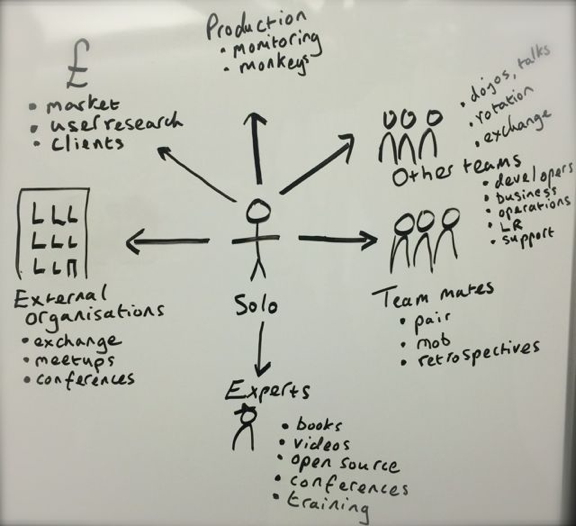 Production
• monitoring
• monkeys
£
• market
• user research
• clients
• dojos, talks
• rotation
• exchange
Other teams
• developers
• business
• operations
• LR
• support
External
organisations
• exchange
• meetups
• conferences
Solo
Team mates
• pair
• mob
• retrospectives
Experts
• books
• videos
• open source
• conferences
• training